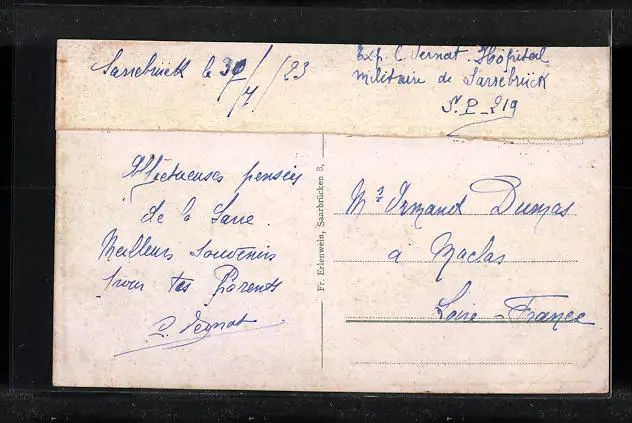 Sarrebrück le 30/7/23
Exp. L. Vernat. Hôpital
militaire de Sarrebrück
S. P. 219
Affectueuses pensées
de la Sarre.
Meilleurs souvenirs
pour tes Parents
L. Vernat
Fr. Erlenwein, Saarbrücken 3.
Mr Armand Dumas
a Maclas
Loire - France